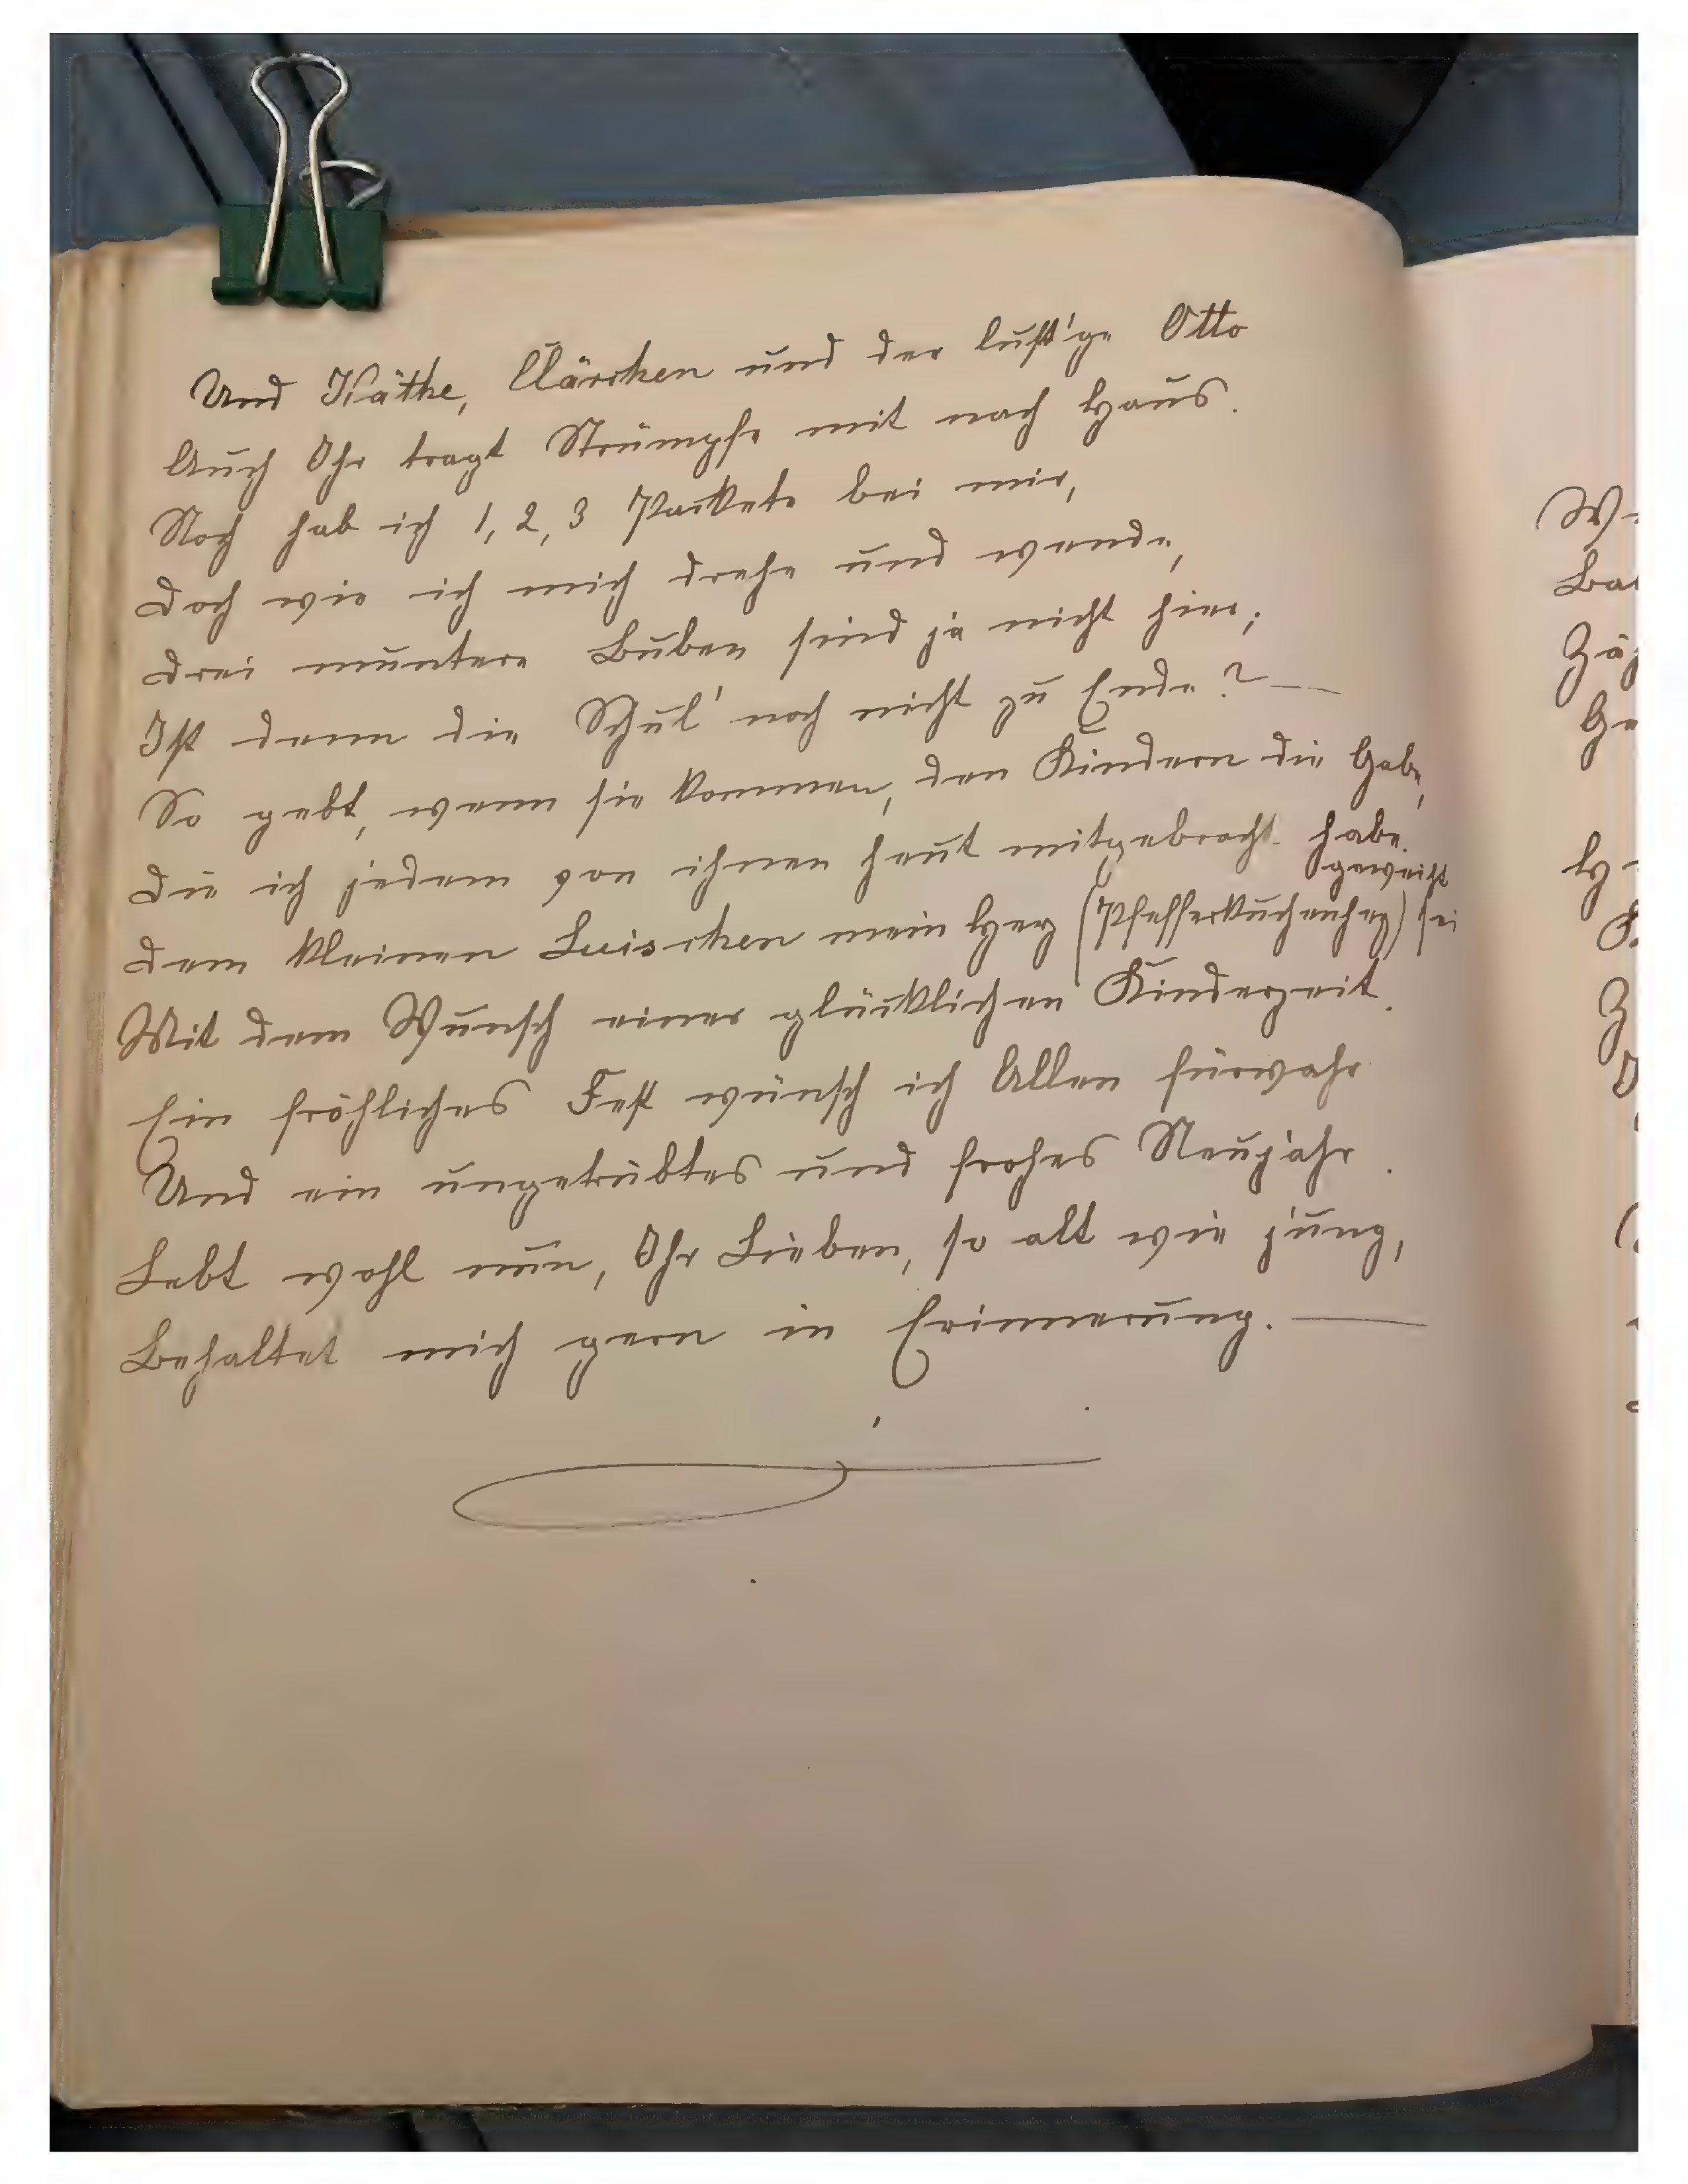 Und Käthe, Clärchen und der lust'ge Otto
Auch Ihr tragt Strümpfe mit nach Haus.
Noch hab ich 1, 2, 3 Packete bei mir,
Doch wie ich mich drehe und wende,
Drei muntere Buben sind ja nicht hier;
Ist denn die Schul' noch nicht zu Ende? —
So gebt, wenn sie kommen, den Kindern die Gabe,
Die ich jedem von ihnen heut mitgebracht habe.
geweiht
Dem kleinen Luischen mein Herz (Pfefferkuchenherz) sei
Mit dem Wunsch einer glücklichen Kinderzeit.
Ein fröhliches Fest wünsch ich Allen fürwahr
Und ein ungetrübtes und frohes Neujahr.
Lebt wohl nun, Ihr Lieben, so alt wie jung,
Behaltet mich gern in Erinnerung. —